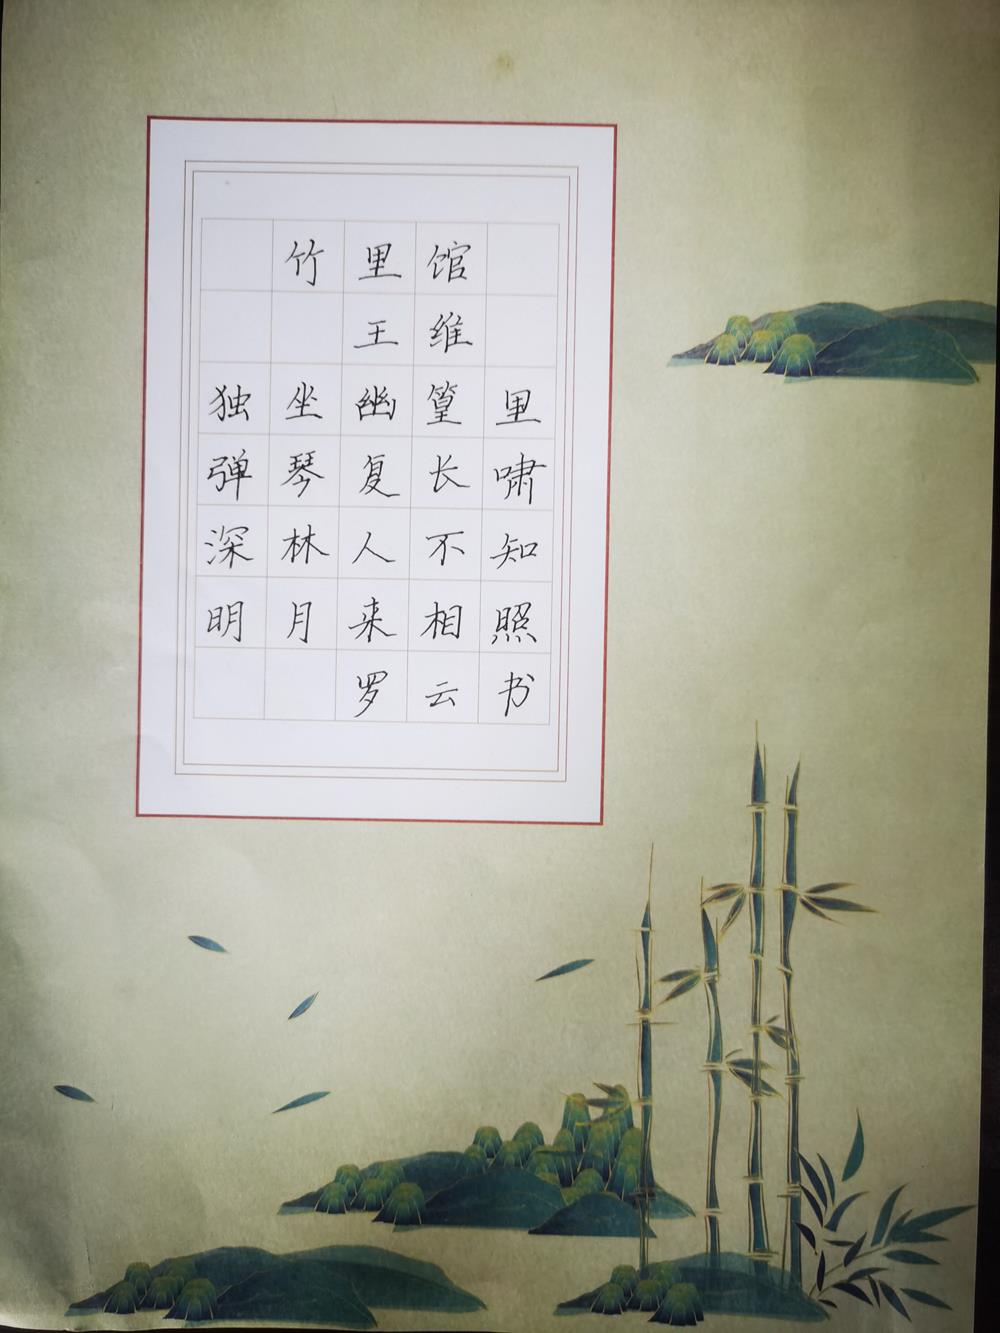 竹里馆
王维
独坐幽篁里
弹琴复长啸
深林人不知
明月来相照
罗云书